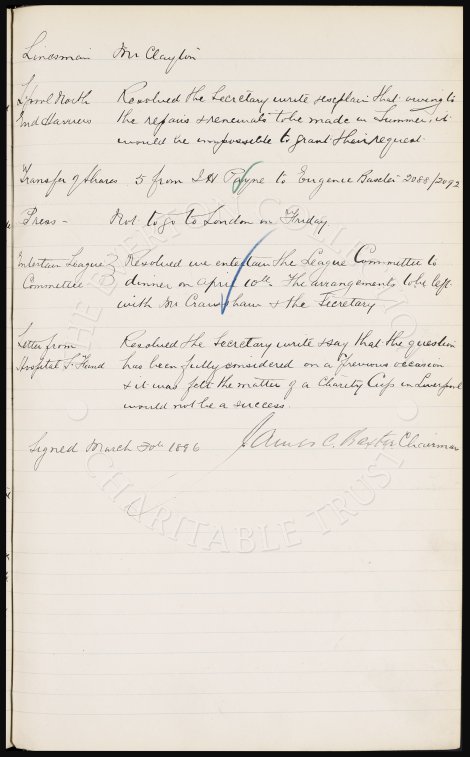 Linesman Mr Clayton
L'pool North Resolved the Secretary write & explain that owing to
End Harriers the repairs & renewals to be made in Summer it
would be impossible to grant their request.
Transfer of Shares 5 from J H Payne to Eugenie Baxter 2088/2092
Press - Not to go to London on Friday
Entertain League Resolved we entertain the League Committee to
Committee dinner on April 10th. The arrangements to be left
with Mr Crawshaw & the Secretary
Letter from Resolved the Secretary write & say that the question
Hospital S. Fund has been fully considered on a previous occasion
& it was felt the matter of a Charity Cup in Liverpool
would not be a success.
Signed March 30th 1896 James C. Baxter Chairman
THE EVERTON COLLECTION
CHARITABLE TRUST